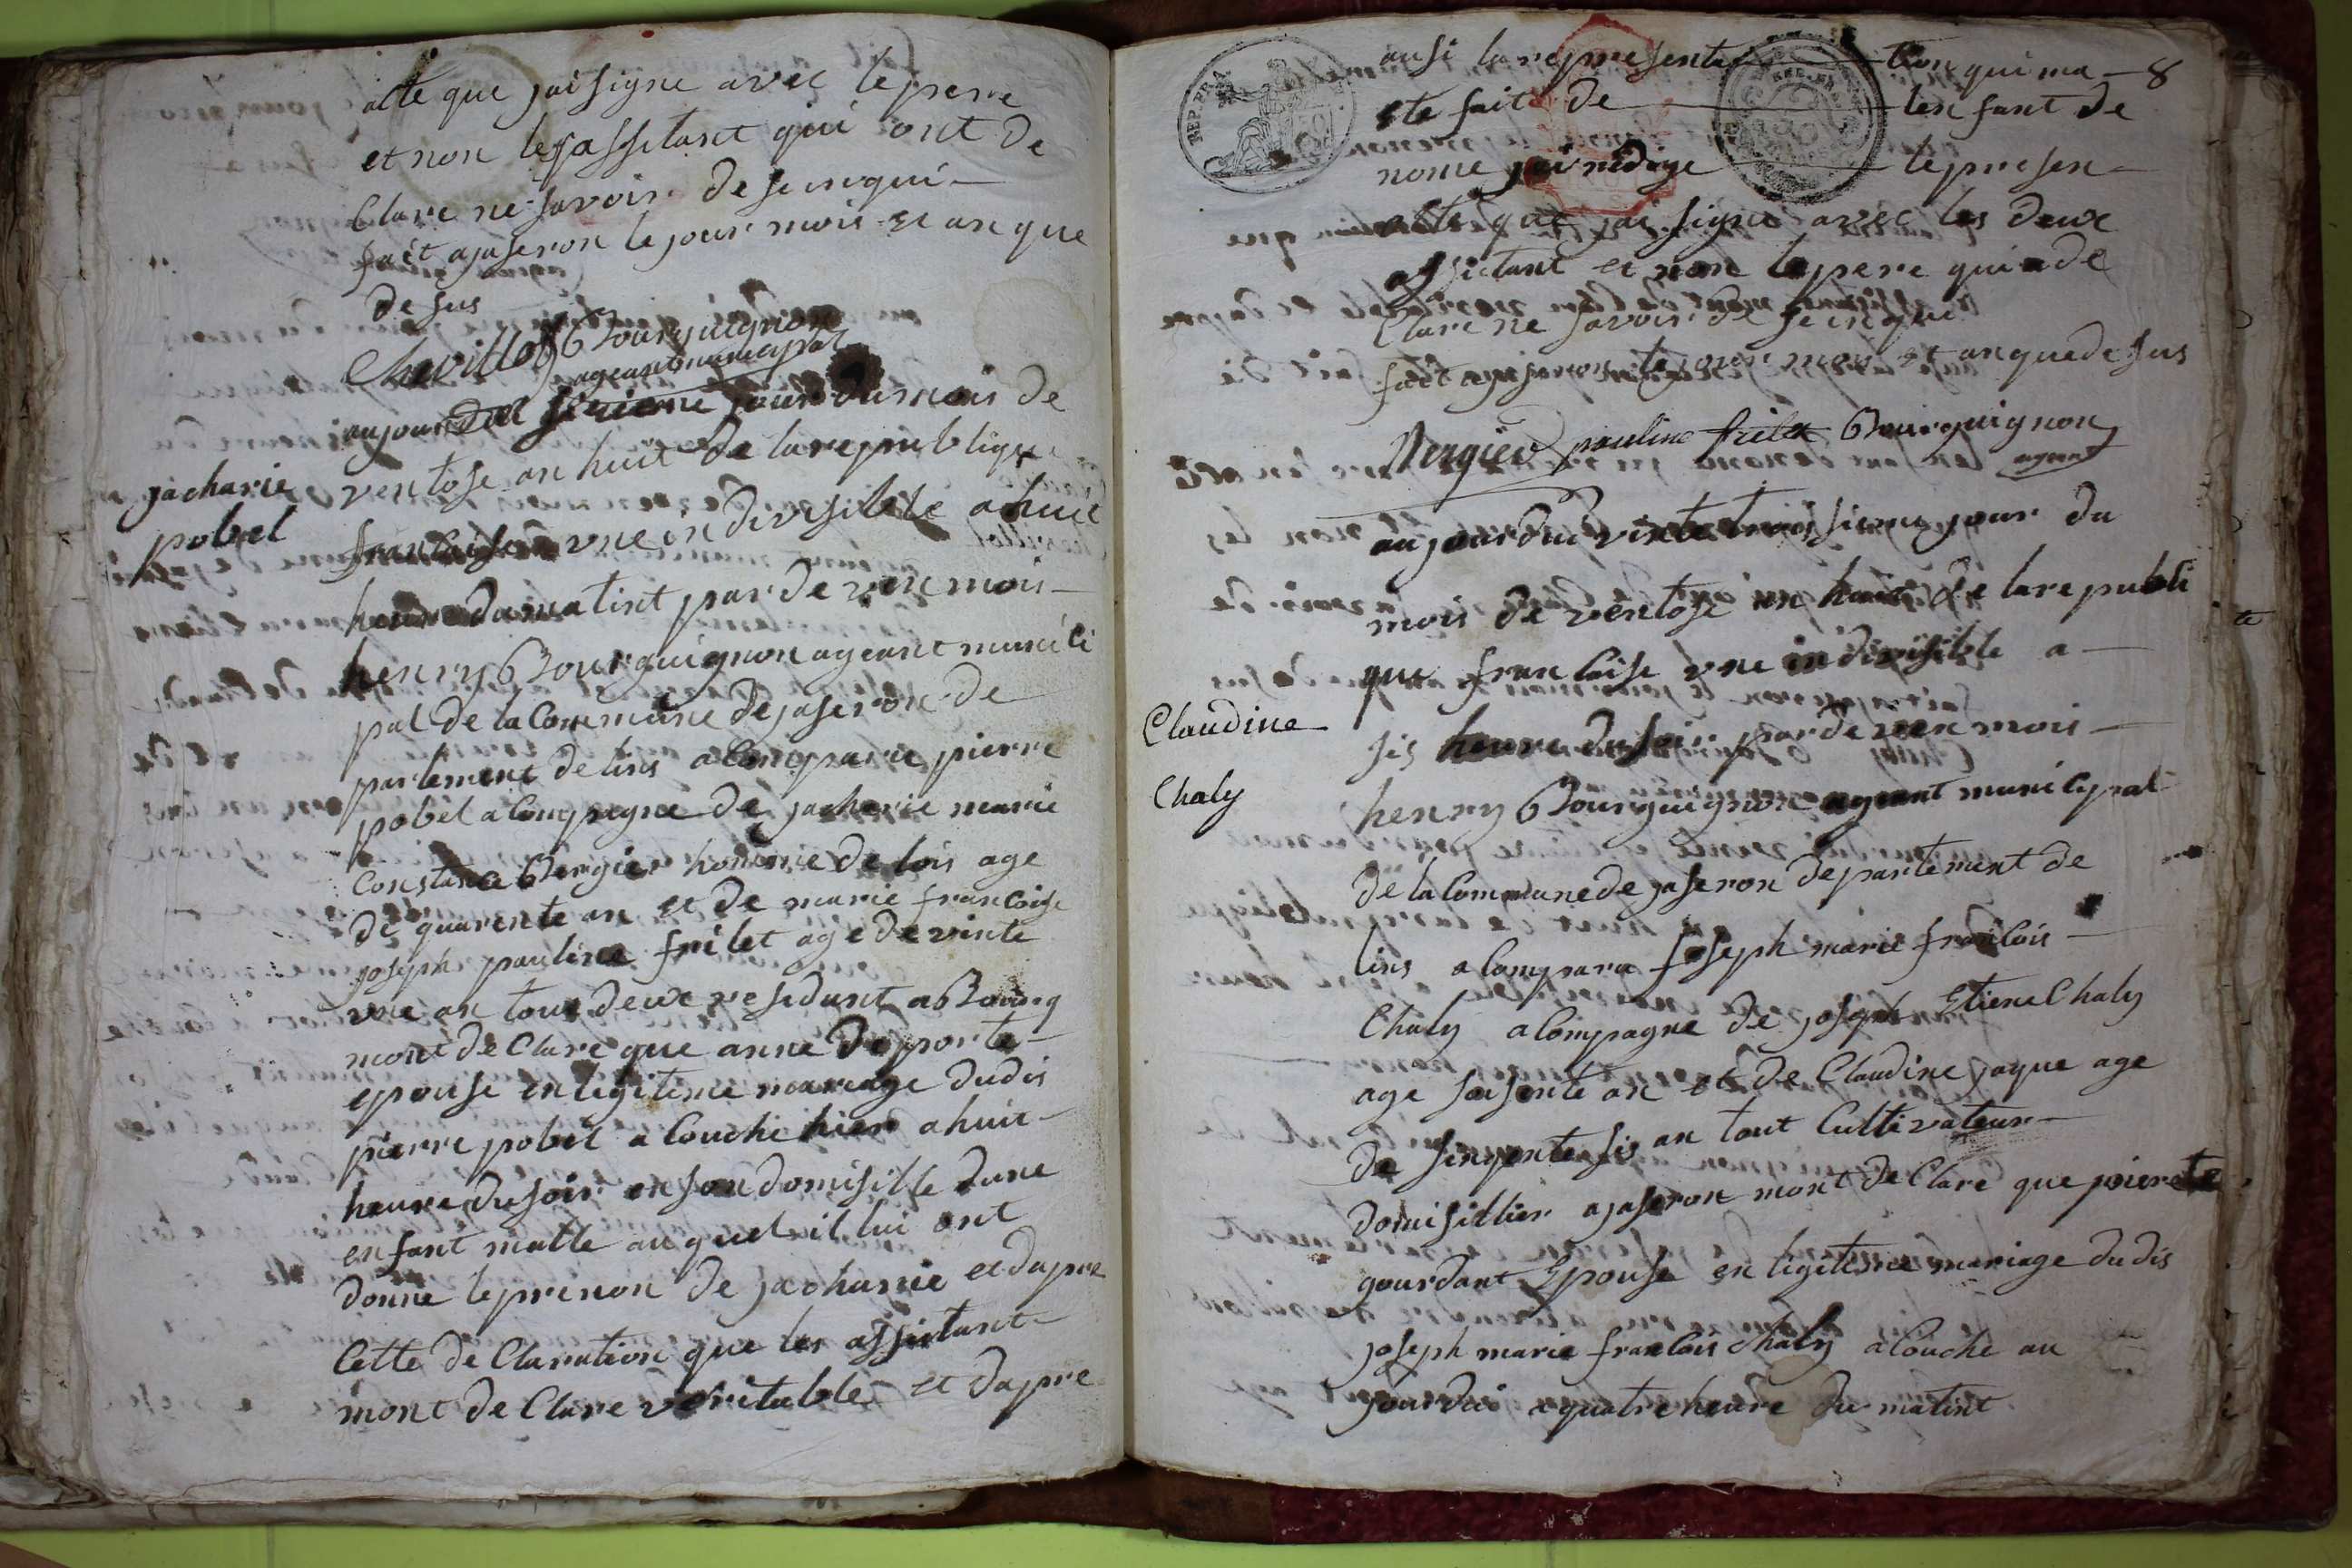 acte que jai signe avec le pere
et non les assitant qui ont de
clare ne savoir de se inqui
fait a jaseron le jour mois et an que
de sus
Chevillot Bourguignon
ageant municypal
aujourdui sezieme jour du mois de
ventose an huit de la republique
francaise vne in divisible a huit
heure du matint par de ven mois
henry Bourguignon ageant munici
pal de la Commune de jaseron de
partement de lins a Comparu pierre
pobel a Compagne de jacharie marie
Constance Bergier homme de lois age
de quarente an et de marie francoise
joseph pauline frilet age de vinte
vne an tous deux residant a Bourg
mont de Clare que anne Deporte
epouse en legitime mariage dudis
pierre pobel a Couche hier a huit
heure du soir en son domisille dune
enfant malle au quel il lui ont
donne le prenon de jacharie et dapre
Cette de Claration que les assistant
mont de Clare veritable et dapre
jacharie
pobel
REP. FRA
ausi la representa tion qui ma 8
ete fait de lenfant de
nome jai redige le presen
acte que jai signe avec les deux
assictant et non le pere qui a de
Clare ne savoir de se inqui
fait a jaseron le jour mois et an que de sus
Bergier pauline frilet Bourguignon
ageant
aujourdui vinte troissieme jour du
mois de ventose an huit de la republi
que francaise vne indivisible a
sis heure du soir par de ven mois
henry Bourguignon ageant municypal
de la Commune de jaseron departement de
lins a Comparu joseph marie francois
Chaly a Compagne de joseph Etiene Chaly
age soisente an et de Claudine jaque age
de sinqente sis an tout Cultivateur
domisillier a jaseron mont de Clare que pierete
gourdant Epouse en legitime mariage du dis
joseph marie francois Chaly a Couche au
jourdui a quatre heure du matint
Claudine
Chaly